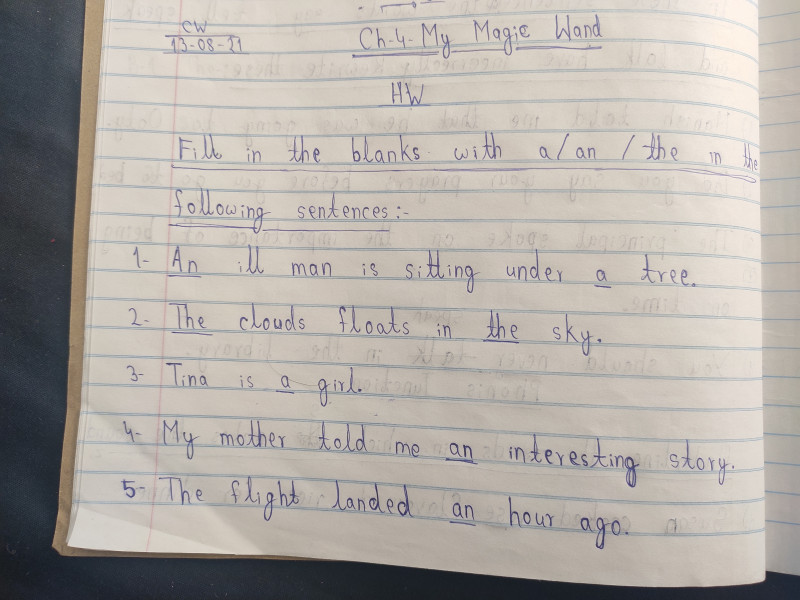 CW
13-08-21
Ch-4-My Magic Wand
HW
Fill in the blanks with a/an / the in the
following sentences:-
1- An ill man is sitting under a tree.
2- The clouds floats in the sky.
3- Tina is a girl.
4- My mother told me an interesting story.
5- The flight landed an hour ago.